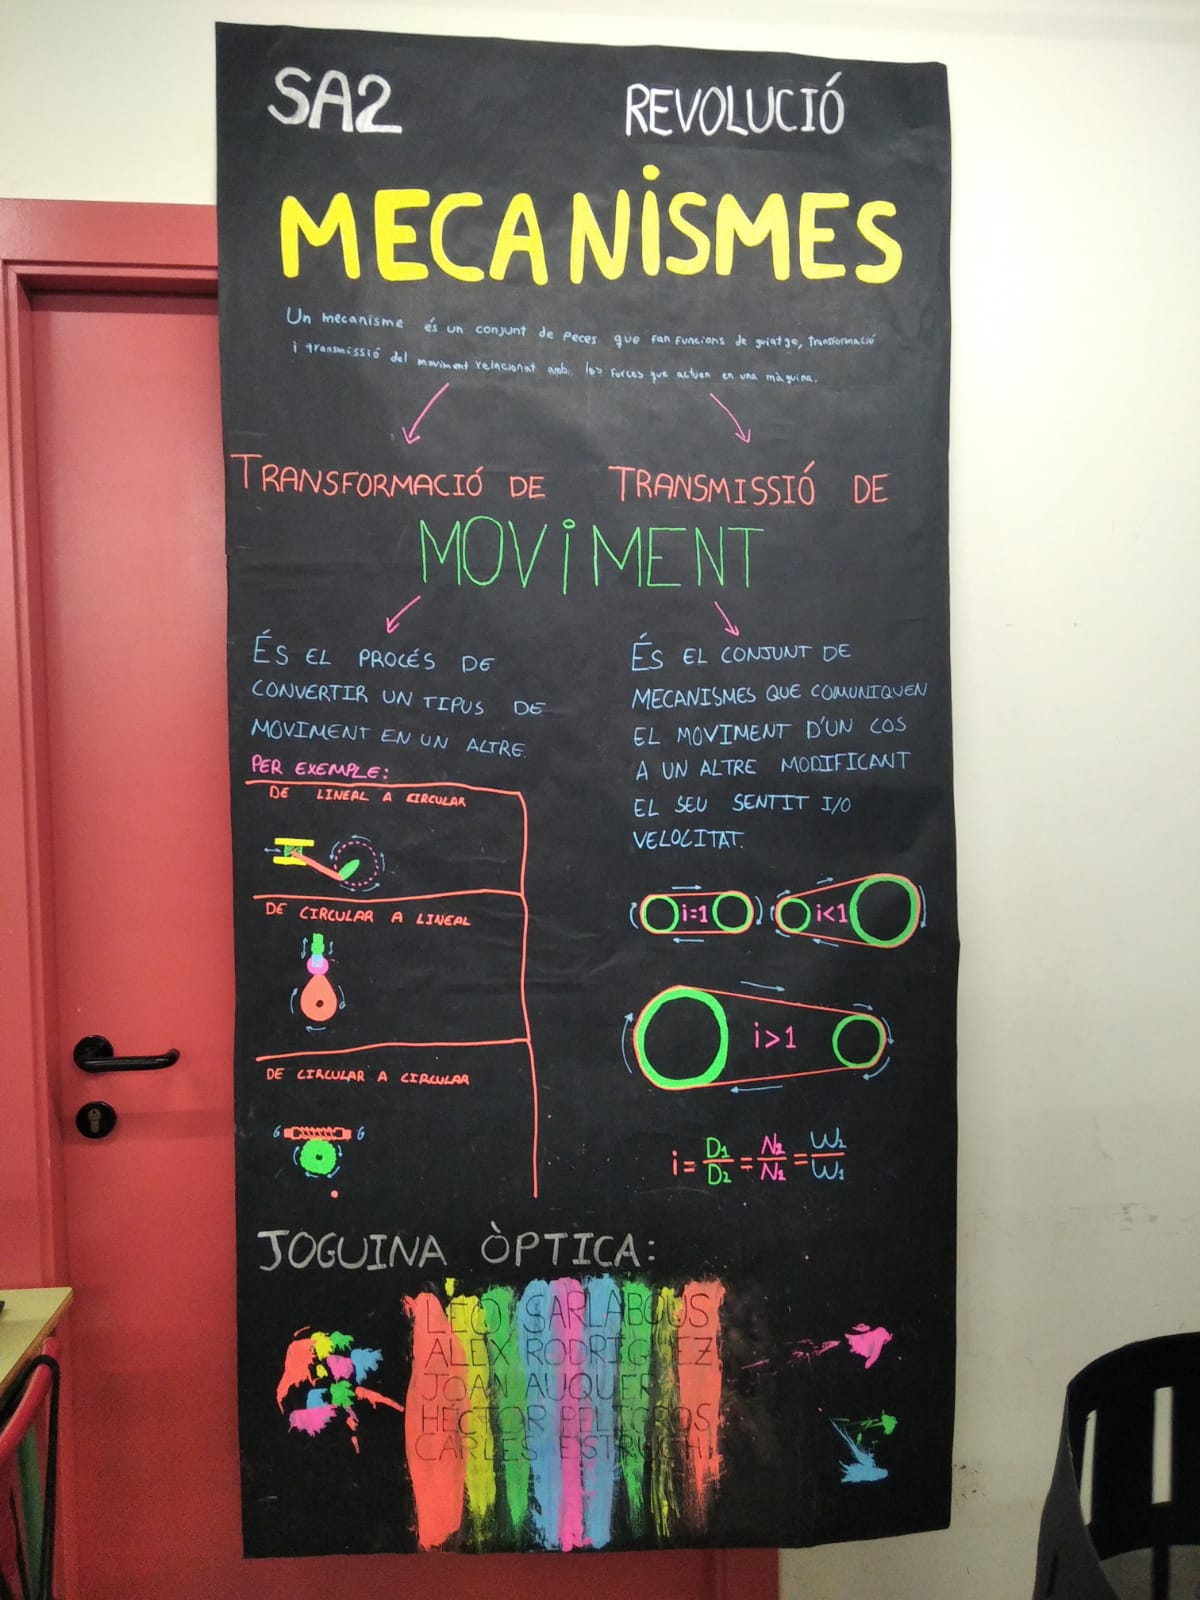 SA2 REVOLUCIÓ
MECANiSMES
Un mecanisme és un conjunt de peces que fan funcions de guiatge, transformació
i transmissió del moviment relacionat amb les forces que actuen en una màquina.
TRANSFORMACIÓ DE TRANSMISSIÓ DE
MOViMENT
ÉS EL PROCÉS DE
CONVERTIR UN TIPUS DE
MOVIMENT EN UN ALTRE.
PER EXEMPLE:
DE LINEAL A CIRCULAR
DE CIRCULAR A LINEAL
DE CIRCULAR A CIRCULAR
G G
ÉS EL CONJUNT DE
MECANISMES QUE COMUNIQUEN
EL MOVIMENT D'UN COS
A UN ALTRE MODIFICANT
EL SEU SENTIT I/O
VELOCITAT.
i=1 i<1
i>1
i = D1/D2 = N2/N1 = W2/W1
JOGUINA ÒPTICA:
LEO SARLABOUS
ALEX RODRIGUEZ
JOAN AUQUER
HÉCTOR PELIGROS
CARLES ESTRUCH